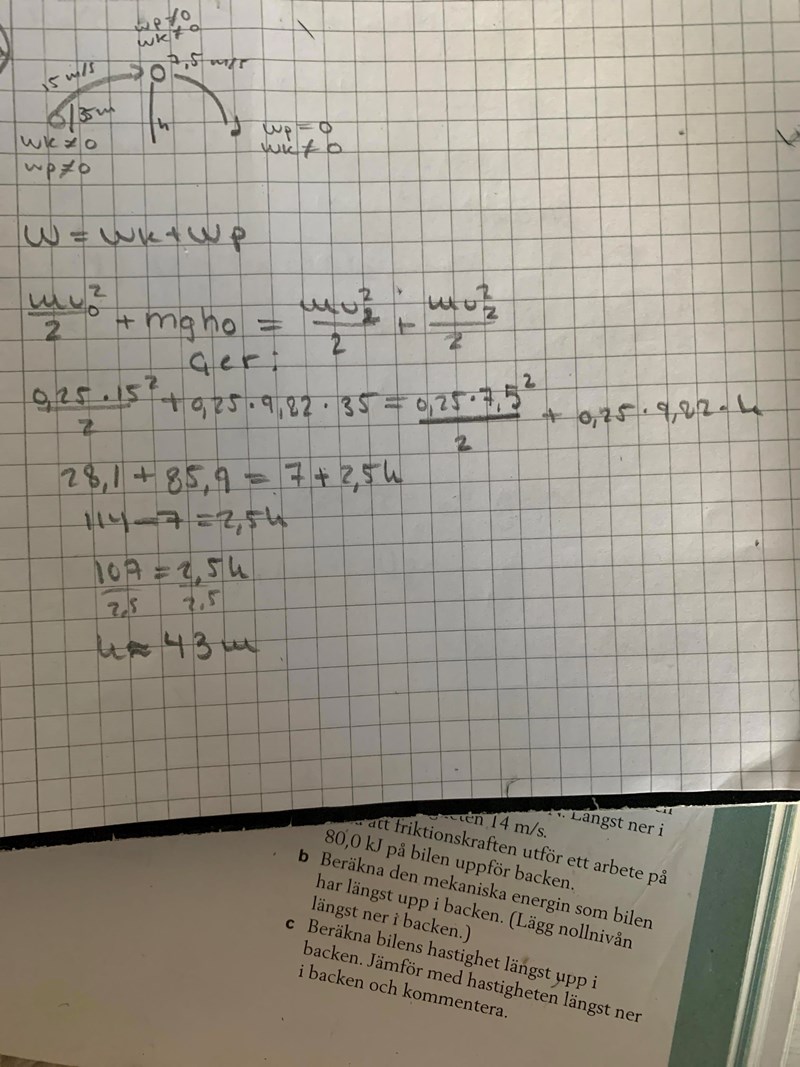 wp≠0
wk≠0
7,5 m/s
15 m/s
35m
h
wk≠0
wp≠0
wp=0
wk≠0
W = Wk + Wp
mv₀²/2 + mgh₀ = mv₂²/2 + mv₂²/2
Ger:
0,25·15²/2 + 0,25·9,82·35 = 0,25·7,5²/2 + 0,25·9,82·h
28,1 + 85,9 = 7 + 2,5h
114-7 = 2,5h
107/2,5 = 2,5h/2,5
h≈43m
Längst ner i
14 m/s.
att friktionskraften utför ett arbete på
80,0 kJ på bilen uppför backen.
b Beräkna den mekaniska energin som bilen
har längst upp i backen. (Lägg nollnivån
längst ner i backen.)
c Beräkna bilens hastighet längst upp i
backen. Jämför med hastigheten längst ner
i backen och kommentera.